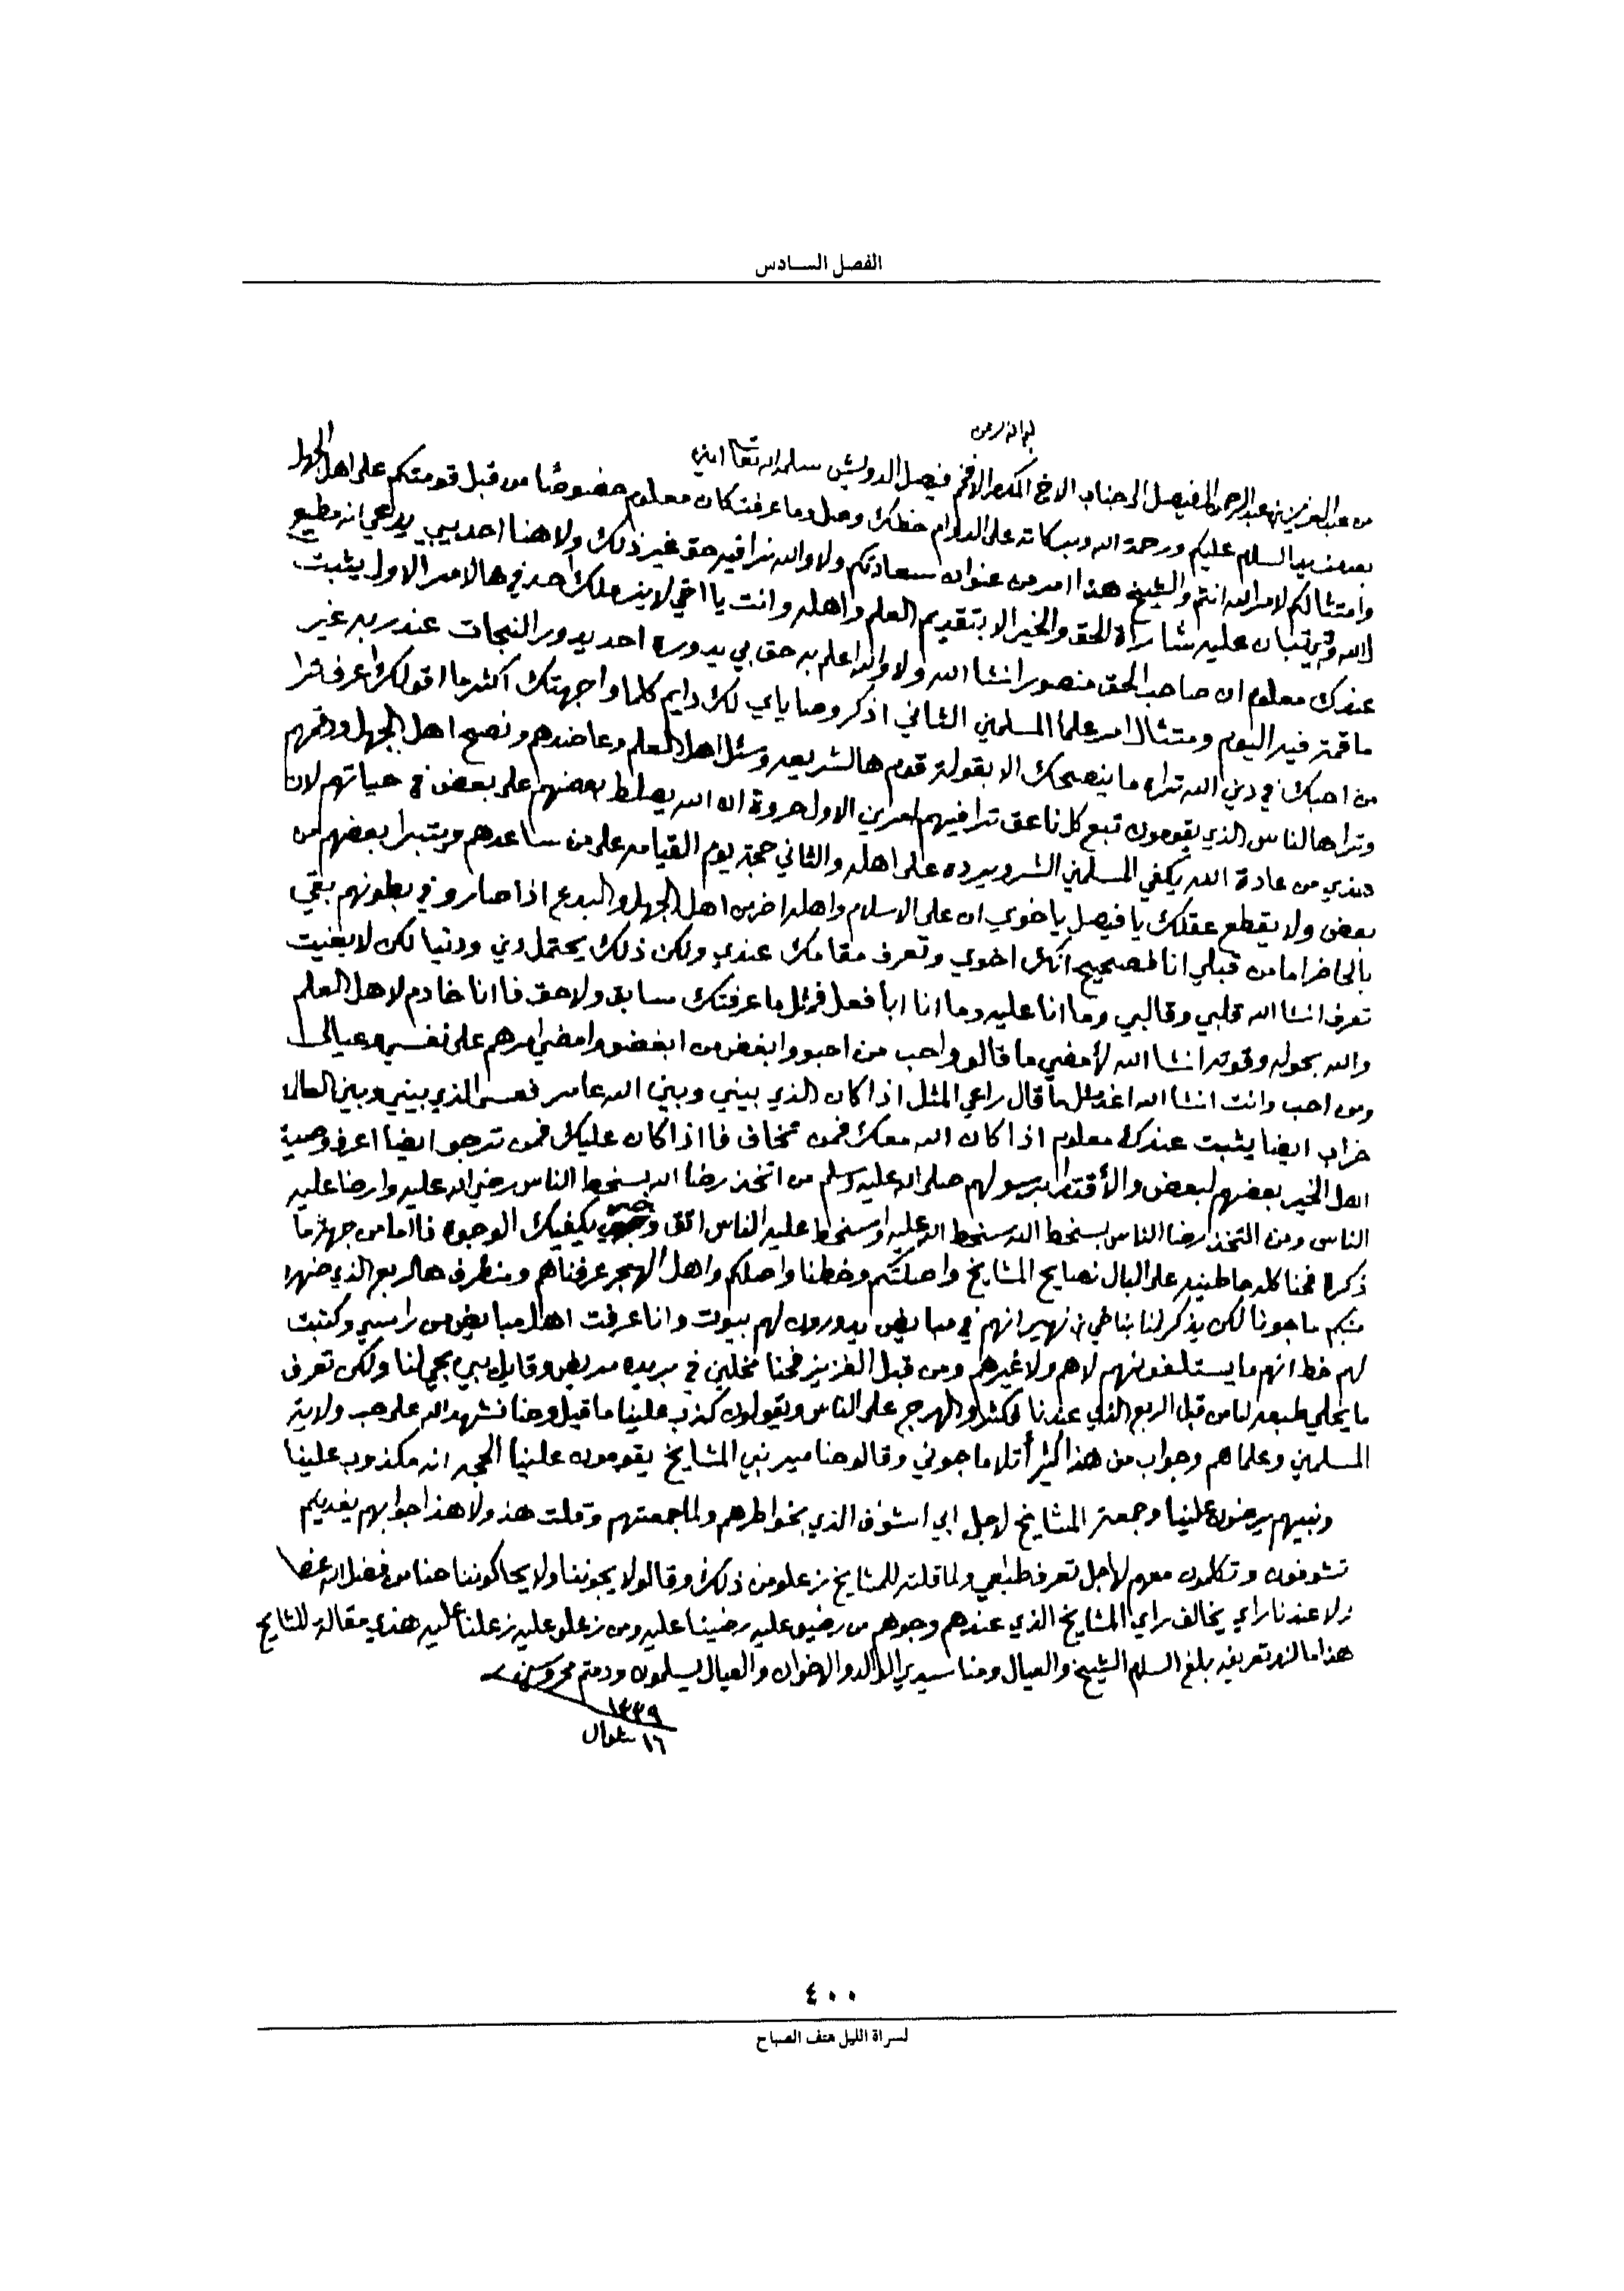 الفصل السادس
بسم الله الرحمن
من عبد العزيز بن عبد الرحمن الفيصل الى جناب الاخ المكرم الافخم فيصل الدويش سلمه الله تعالى امين
بعد السلام عليكم ورحمة الله وبركاته على الدوام خطك وصل وما عرفت كان معلوم خصوصًا من قبل قومتكم على اهل الجهل
وامتثالكم لامر الله انتم والشيخ هذا امر من عنوان سعادتكم ولا والله نرا فيه حق غير ذلك ولا هنا احد يبي يدعي انه مطيع
لله عليه شارة الحق والخير الا بتقديم العلم واهله وانت يا اخي لا ينشدك احد في هالامر الاول يثبت
عندك معلوم ان صاحب الحق منصور انشا الله ولا والله اعلم به حق بي يدوره احد يدور النجات عند ربه غير
ما قمت فيه اليوم ومتثال امر علما المسلمين الثاني اذكر وصاياي لك دايم كلما واجهتك اكثر ما اقولك اعرف ترا
من احبك في دين الله تراه ما ينصحك الا بقولة قدم هالشريعه وسئل اهل العلم وعاضدهم ونصح اهل الجهل
وترا هالناس الذي يقومون تبع كل ناعق ترا فيهم امرين الاول مروة ان الله يصلط بعضهم على بعض في حياتهم لان
هذي من عادة الله يكفي المسلمين الشر ويرده على اهله والثاني حجة يوم القيامه على من ساعدهم ويتبرا بعضهم من
بعض ولا يقطع عقلك يا فيصل ياخوي ان على الاسلام واهله اضر من اهل الجهل والبدع اذا صارو في بطونهم بقي
بالحاضر اما من قبلي انا الصحيح انك اخوي وتعرف مقامك عندي ولكن ذلك يحتمل دين ودنيا لكن لا يغنيت
تعرف انشا الله قلبي وقالبي وما انا عليه وما انا ابا فعل مثل ما عرفتك سابق ولاحق فا انا خادم لاهل العلم
والله بحوله وقوته انشا الله لأمضي ما قالو واحب من احبو وابغض من ابغضو وامضي امرهم على نفسي وعيالي
ومن احب وانت انشا الله اغد مثل ما قال راعي المثل اذا كان الذي بيني وبين الله عامر فعسى الذي بيني وبين العالم
خراب ايضا يثبت عندك معلوم اذا كان الله معك فمن تخاف فا اذا كان عليك فمن ترجو ايضا اعرف وصية
اهل الخير بعضهم لبعض والأقتدا برسولهم صلى الله عليه وسلم من اتخذ رضا الله بسخط الناس رضي الله عليه وارضا عليه
الناس ومن التخذ رضا الناس بسخط الله سخط الله عليه واسخط عليه الناس اتق يكفيك الوجوه فا اما من جهة ما
ذكرة فحنا كله حاطينه على البال نصايح المشايخ واصلتكم وخطنا واصلكم واهل الهجر عرفناهم وبنطرف هالربع الذي
منكم ماجونا لكن يذكر لنا بناخي بن نهير انهم في مبايض يدورون لهم بيوت وانا عرفت اهل مبايض من راسي وكتبت
لهم خط انهم ما يستلفونهم لاهم ولا غيرهم ومن قبل العزيز فحنا مخلين في بريده مريض وقايل يبي يجي لنا ولكن تعرف
ما يخلي طبعه اما من قبل الربع الذي عندنا فكثرو الهرج على الناس ويقولون كذب علينا ما قيل وحنا نشهد الله على حب ولاية
المسلمين وعلماهم وجواب من هذا كثير أتلا ماجوني وقالو حنا نبي المشايخ يقومون علينا الحجه انه مكذوب علينا
ونبيهم يرضون علينا وجمعت المشايخ لاجل ابي اشوف الذي بخواطرهم ولما جمعتهم وقلت هذولا هذا جوابهم
تشوفون وتكلمون معهم لأجل تعرف طبعي ولما قلته للمشايخ زعلو من ذلك وقالو لا يجوننا ولا يحاكوننا حنا من فضل الله
ولا عندنا راي يخالف راي المشايخ الذي عندهم وجوهم من رضيو عليه رضينا عليه ومن زعلو عليه زعلنا عليه هذي مقالة المشايخ
هذا ما لزم تعريفه بلغ السلام الشيخ والعيال ومنا سيدي الوالد والاخوان والعيال يسلمون ودمتم محروسين
١٣٣٩
١٦ شوال
٤٠٠
لسراة الليل هتف الصباح